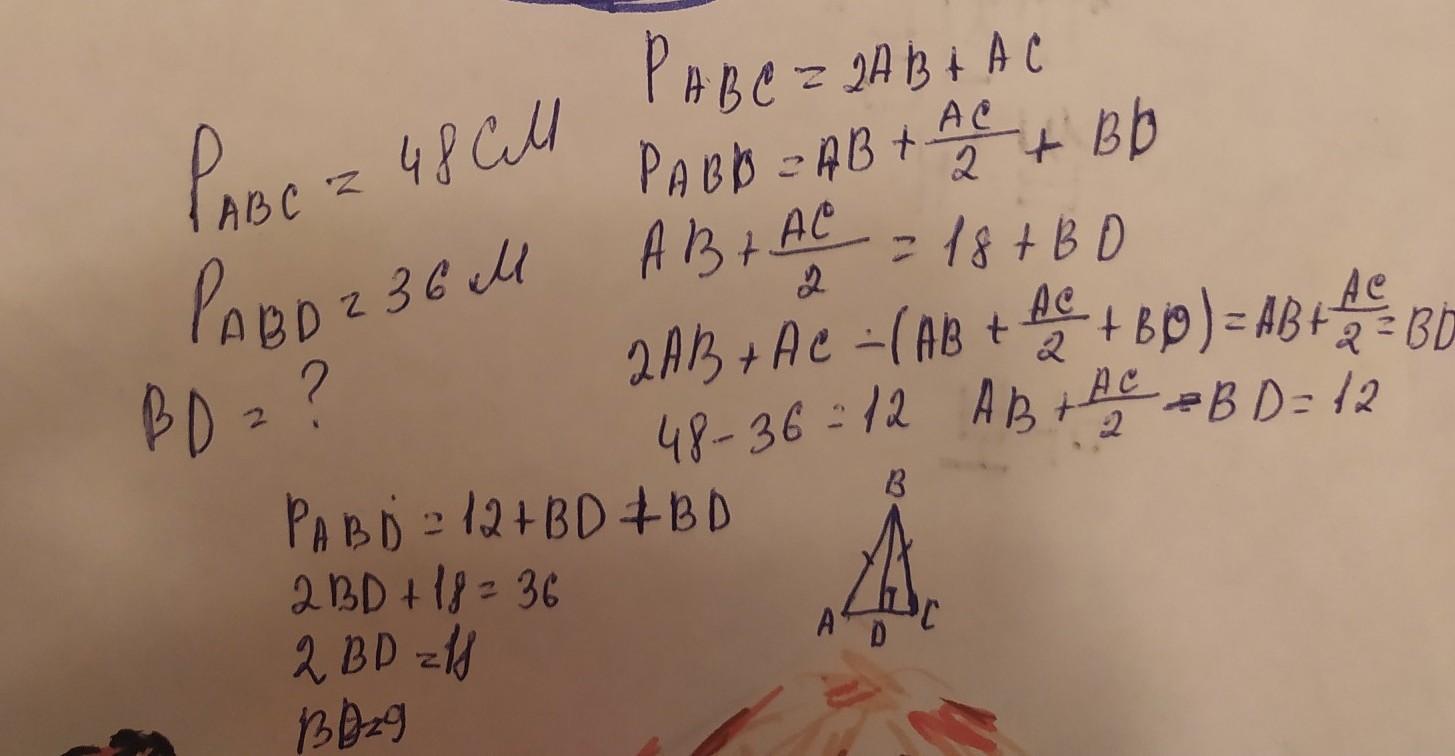 P ABC = 48 СМ
P ABD = 36 см
BD = ?
P ABC = 2AB + AC
P ABD = AB + AC/2 + BD
AB + AC/2 = 18 + BD
2AB + AC - (AB + AC/2 + BD) = AB + AC/2 = BD
48 - 36 = 12 AB + AC/2 - BD = 12
P ABD = 12 + BD + BD
2BD + 18 = 36
2 BD = 18
BD = 9
B
A D C